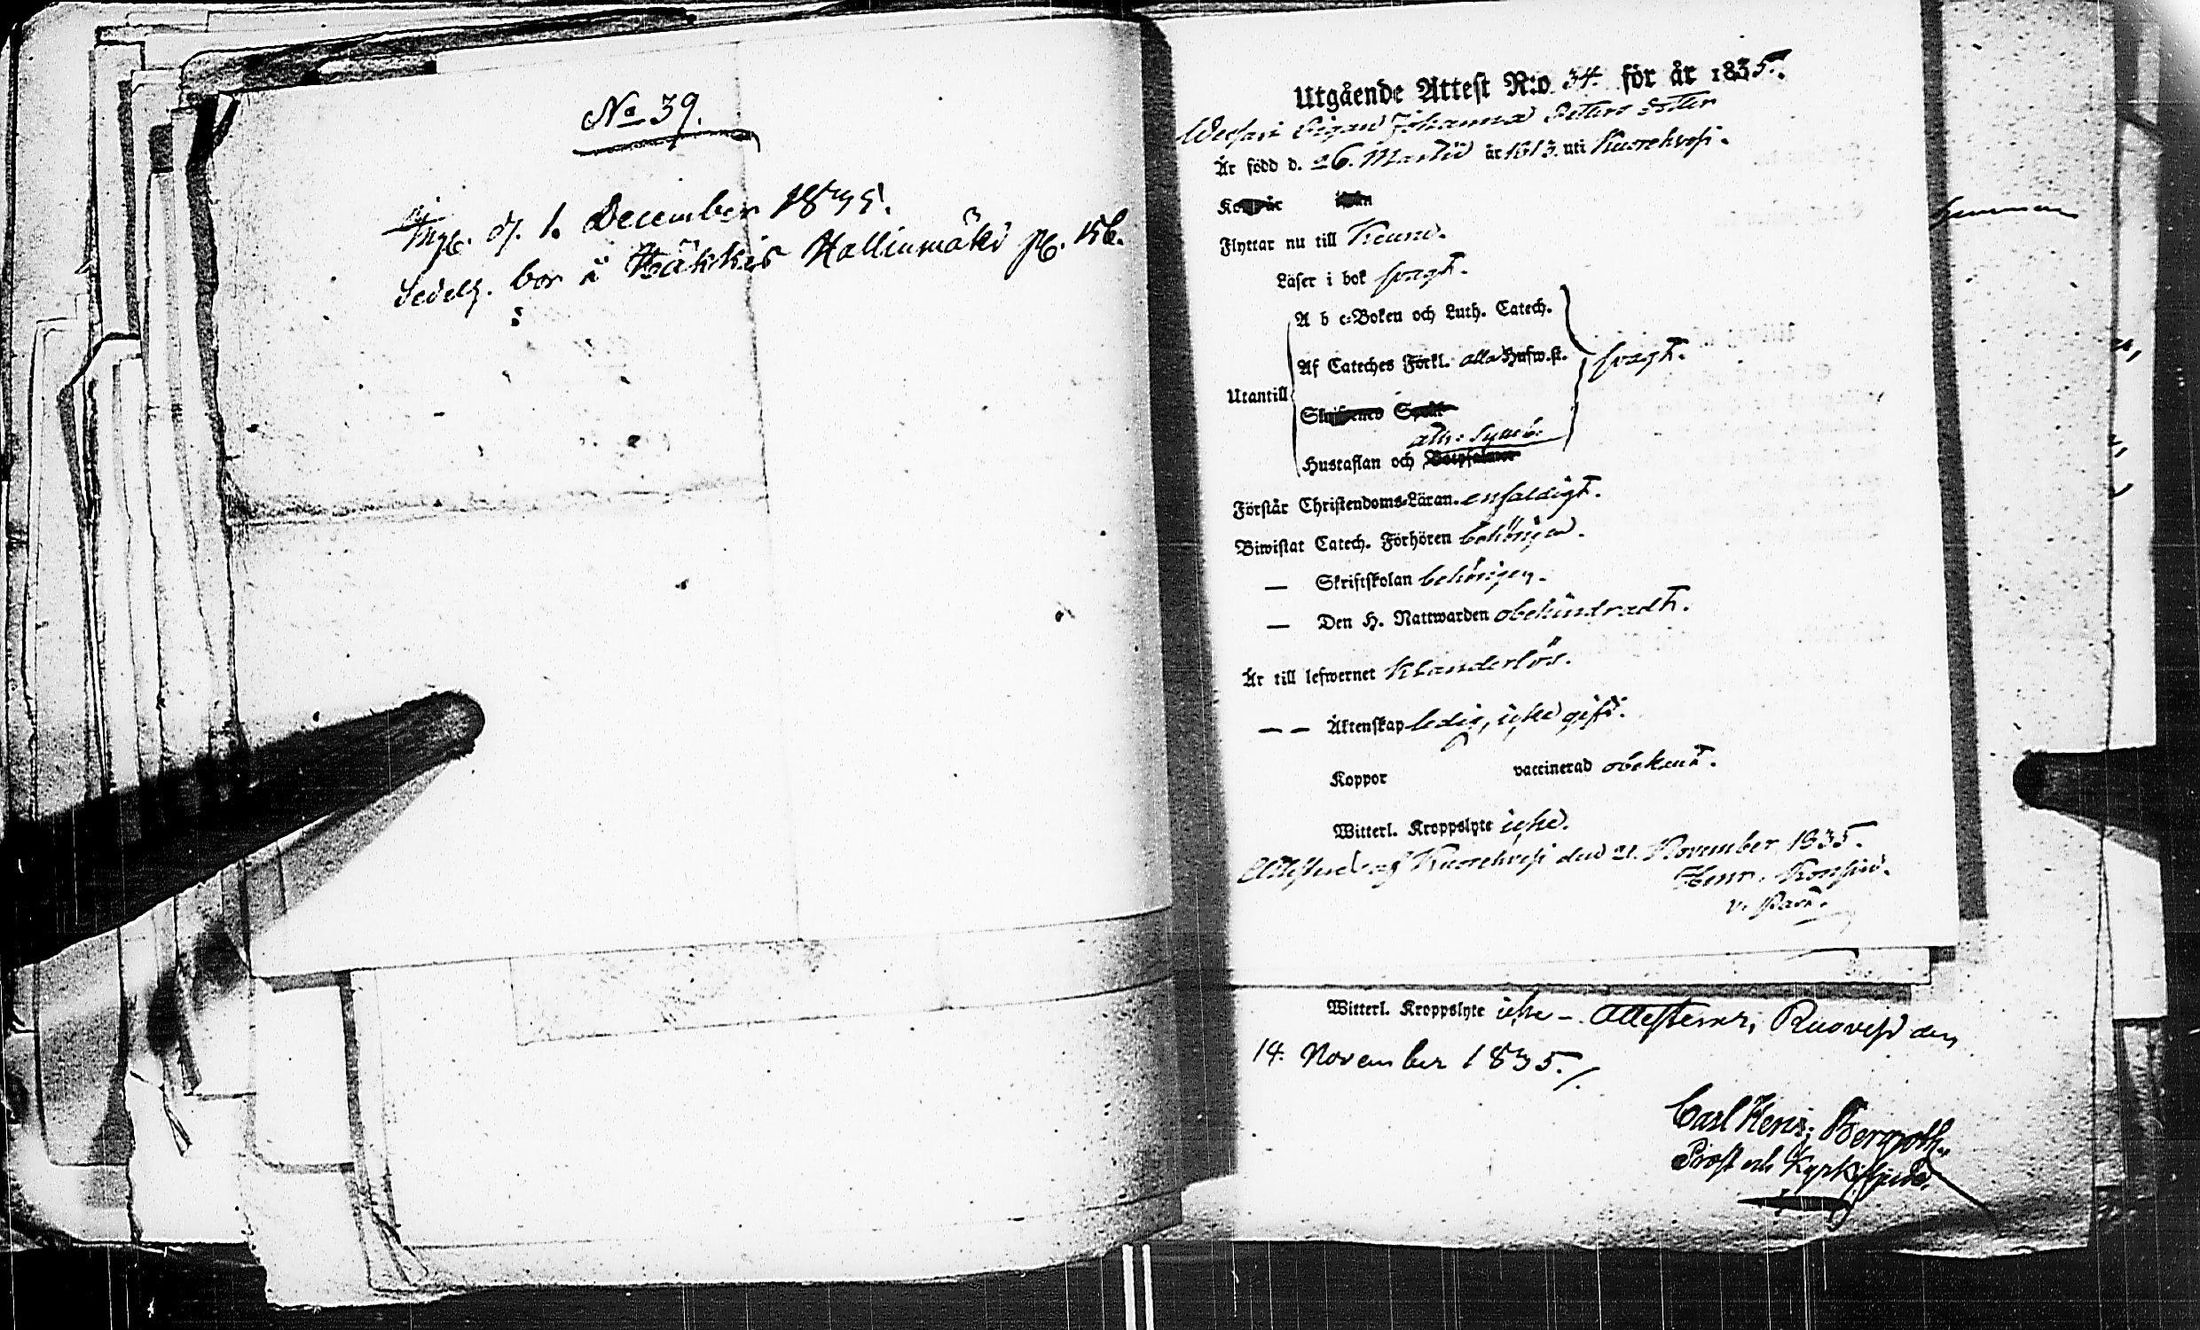 No 39.
d. 1. December 1835.
bor å Häkkis Kallinmäki p. 156.
Utgående Attest N:o 34. för år 1835.
Pigan Johanna Petters dotter
Är född d. 26. Martii år 1813. uti Kuorehvesi.
Flyttar nu till Keuru.
Läser i bok svagt.
A b c-Boken och Luth. Catech.
Af Cateches Förkl. alla Hufw.st. svagt.
Utantill
Ath. Symb.
Hustaflan och
Förstår Christendoms-Läran enfaldigt.
Biwistat Catech. Förhören behörigen.
— Skriftskolan behörigen.
— Den H. Nattwarden obehindradt.
Är till lefwernet klanderlös.
— — Äktenskap ledig, icke gift.
Koppor vaccinerad obekant.
Witterl. Kroppslyte icke.
Kuorehvesi den 21. November 1835.
Henr.
v. Past.
Witterl. Kroppslyte icke – Attesterar, Ruovesi den
14. November 1835./.
Carl Henr. Bergroth.
Prost och Kyrkoherde.